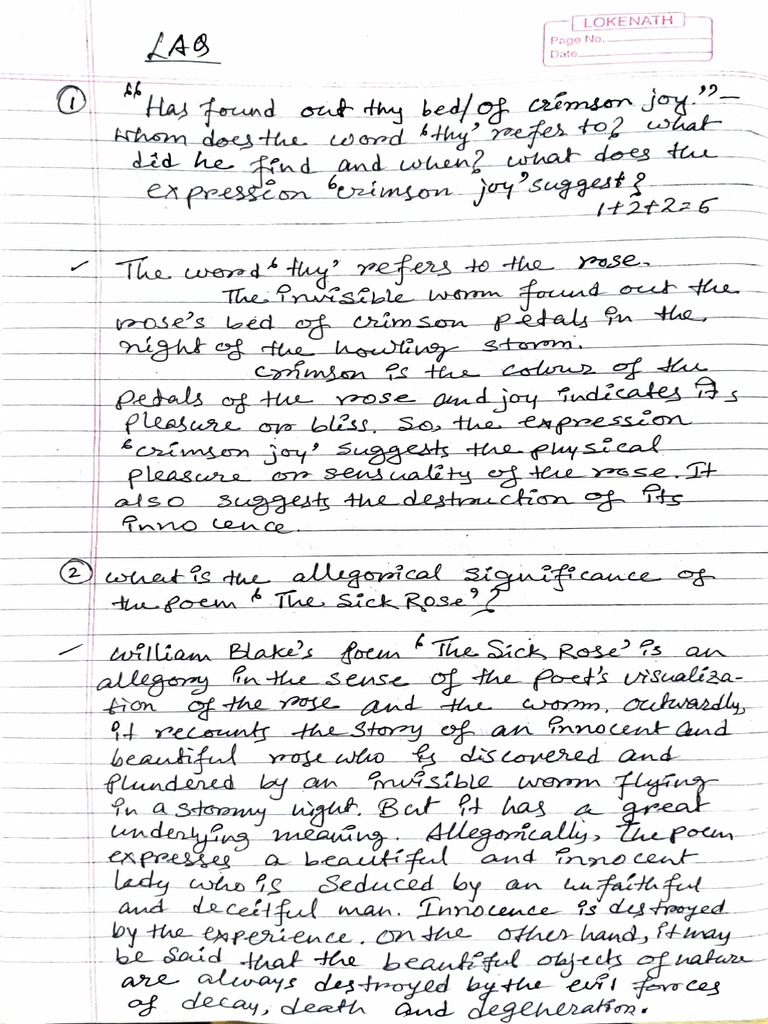 LAQ
LOKENATH
Page No.
Date
① "Has found out thy bed/of crimson joy."—
whom does the word 'thy' refer to? what
did he find and when? what does the
expression 'crimson joy' suggest?
1+2+2=5
✓ The word 'thy' refers to the rose.
The invisible worm found out the
rose's bed of crimson petals in the
night of the howling storm.
crimson is the colour of the
petals of the rose and joy indicates its
pleasure or bliss. So, the expression
'crimson joy' suggests the physical
pleasure or sensuality of the rose. It
also suggests the destruction of its
innocence.
② what is the allegorical significance of
the poem 'The Sick Rose'?
– William Blake's poem 'The Sick Rose' is an
allegory in the sense of the poet's visualiza-
tion of the rose and the worm. outwardly,
it recounts the story of an innocent and
beautiful rose who is discovered and
plundered by an invisible worm flying
in a stormy night. But it has a great
underlying meaning. Allegorically, the poem
expresses a beautiful and innocent
lady who is seduced by an unfaithful
and deceitful man. Innocence is destroyed
by the experience. on the other hand, it may
be said that the beautiful objects of nature
are always destroyed by the evil forces
of decay, death and degeneration.